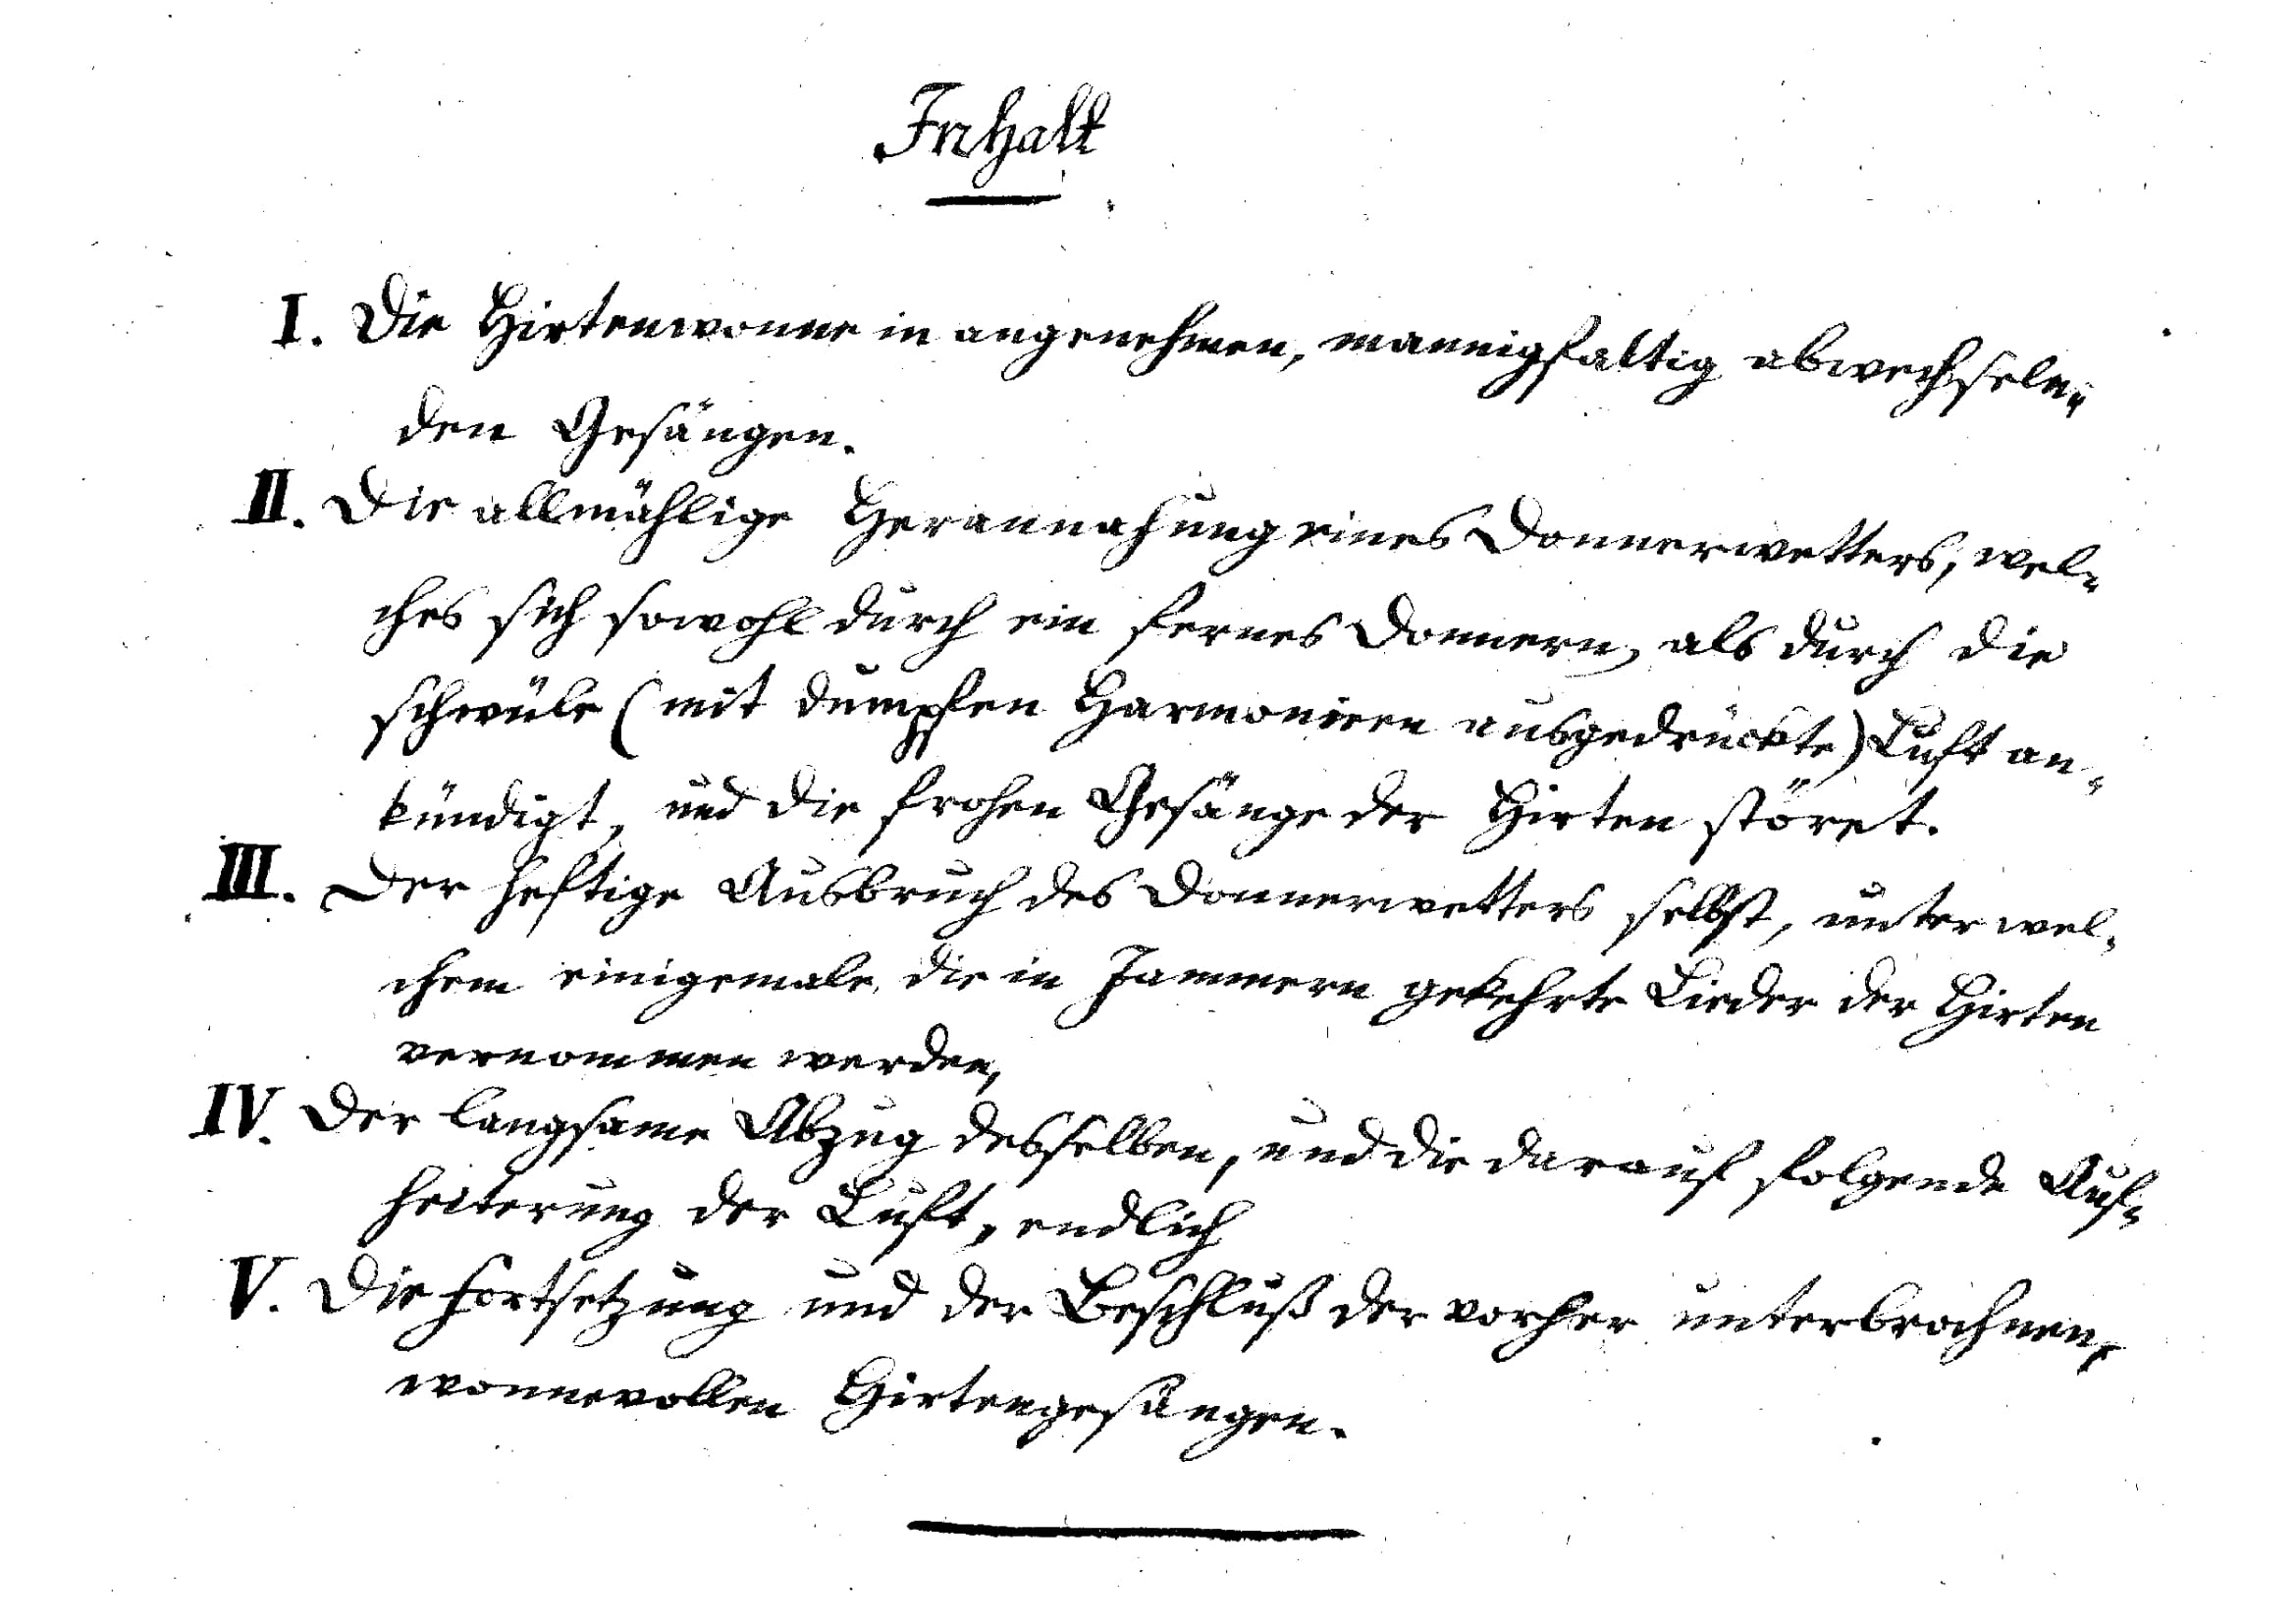 Inhalt
I. Die Hirtenwonne in angenehmen, mannigfaltig abwechseln-
den Gesängen.
II. Die allmählige Herannahung eines Donnerwetters, wel-
ches sich sowohl durch ein fernes Donnern, als durch die
schwüle (mit dumpfen Harmonieen ausgedrückte) Luft an-
kündigt, und die frohen Gesänge der Hirten störet.
III. Der heftige Ausbruch des Donnerwetters selbst, unter wel-
chem einigemale die in Jammern gekehrte Lieder der Hirten
vernommen werden,
IV. Der langsame Abzug desselben, und die darauf folgende Auf-
heiterung der Luft, endlich
V. Die Fortsetzung und der Beschluß der vorher unterbrochnen,
wonnevollen Hirtengesängen.